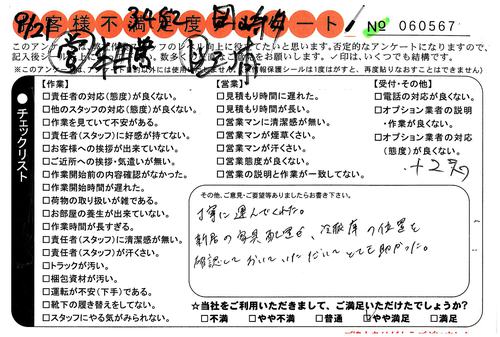 お客様不満足度アンケート!
№ 060567
※このアンケートは
【作業】
□責任者の対応(態度)が良くない。
□他のスタッフの対応(態度)が良くない。
□作業を見ていて不安がある。
□責任者(スタッフ)に好感が持てない。
□お客様への挨拶が出来ていない。
□ご近所への挨拶・気遣いが無い。
□作業開始前の内容確認がなかった。
□作業開始時間が遅れた。
□荷物の取り扱いが雑である。
□お部屋の養生が出来ていない。
□作業時間が長すぎる。
□責任者(スタッフ)に清潔感が無い。
□責任者(スタッフ)が汗くさい。
□トラックが汚い。
□梱包資材が汚い。
□運転が不安(下手)である。
□靴下の履き替えをしてない。
□スタッフにやる気がみられない。
【営業】
□見積もり時間に遅れた。
□見積もり時間が長い。
□営業マンに清潔感が無い。
□営業マンが煙草くさい。
□営業マンが汗くさい。
□営業態度が良くない。
□営業の説明と作業が一致してない。
【受付・その他】
□電話の対応が良くない。
□オプション業者の説明
・作業が良くない。
□オプション業者の対応
(態度)が良くない。
チェックリスト
その他、ご意見・ご要望等ありましたらお書き下さい。
丁寧に運んでくれた。
新居の家具配置を、冷蔵庫の位置を
確認して かいて いただいて とても助かった。
☆当社をご利用いただきまして、ご満足いただけたでしょうか?
□不満 □やや不満 □普通 □やや満足 □満足